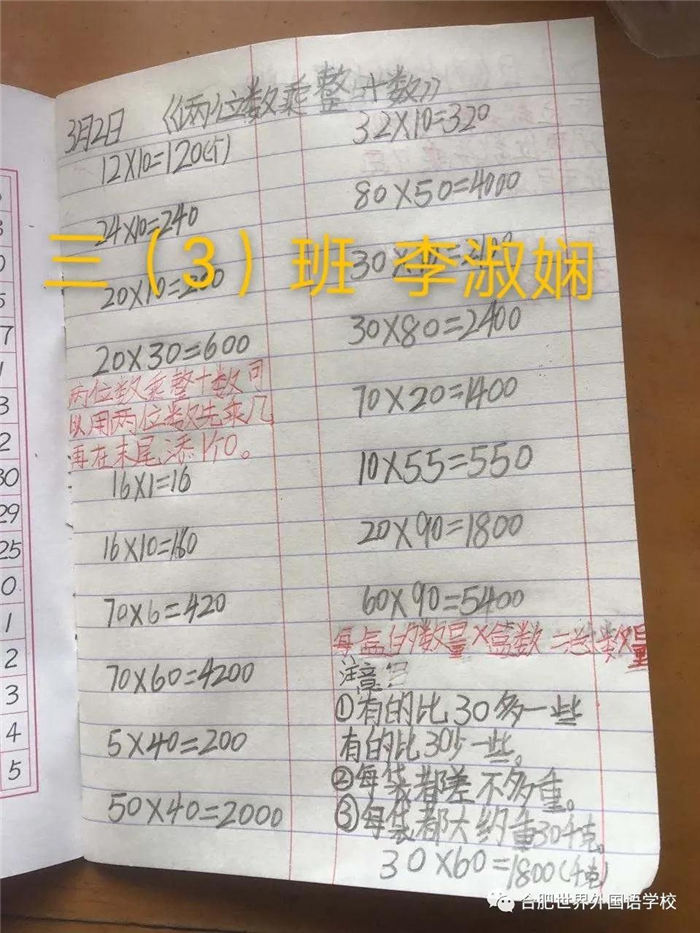 3月2日 《两位数乘整十数》
12×10=120(个)
24×10=240
20×10=200
20×30=600
两位数乘整十数可
以用两位数先乘几
再在末尾添1个0。
16×1=16
16×10=160
70×6=420
70×60=4200
5×40=200
50×40=2000
32×10=320
80×50=4000
30
30×80=2400
70×20=1400
10×55=550
20×90=1800
60×90=5400
每盒的数量×盒数=总数量
注意:
①有的比30多一些
有的比30少一些。
②每袋都差不多重。
③每袋都大约重30千克。
30×60=1800(千克)
三（3）班 李淑娴
30
29
25
0
1
2
3
4
5
合肥世界外国语学校